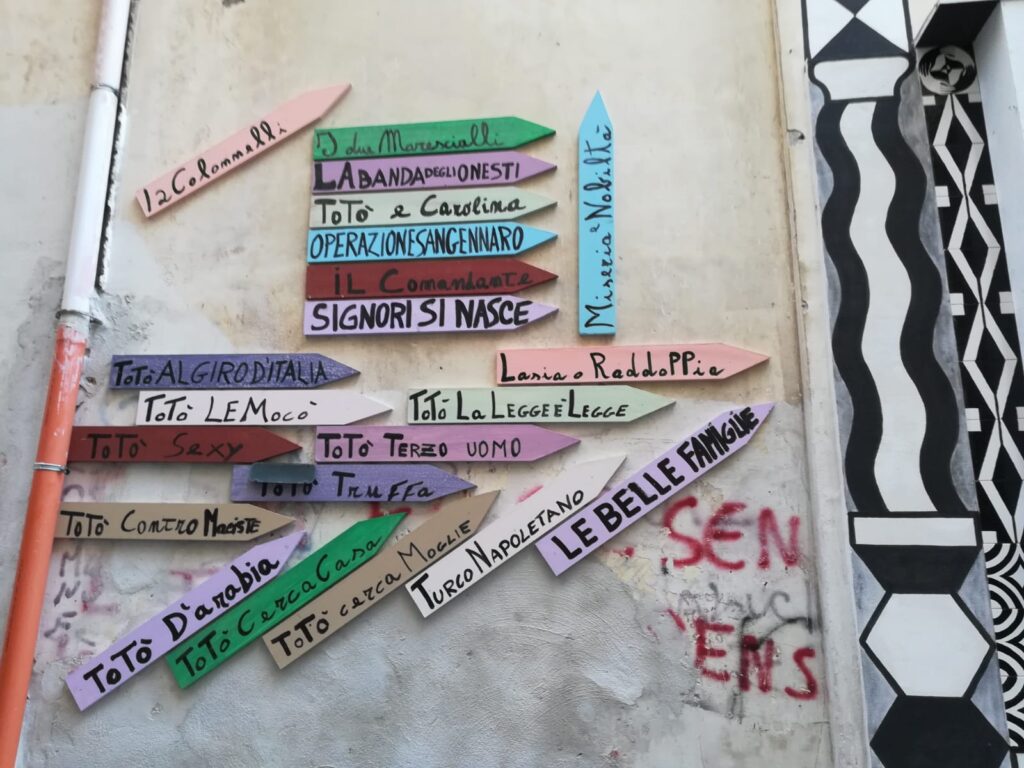 I2 Colonnelli
I due Marescialli
LA BANDA DEGLI ONESTI
TOTÒ e Carolina
OPERAZIONE SAN GENNARO
iL Comandante
SIGNORI SI NASCE
Miseria e Nobiltà
Lasia o RaddoPPia
TOTÒ AL GIRO D'ITALIA
TOTÒ LE MOCÒ
TOTÒ LA LEGGE È LEGGE
TOTÒ Sexy
TOTÒ TERZO UOMO
TOTÒ Truffa
TOTÒ CONTRO MACISTE
TOTÒ D'arabia
TOTÒ Cerca Casa
TOTÒ cerca MOGLIE
TURCO NAPOLETANO
LE BELLE FAMIGLIE
SEN
ENS